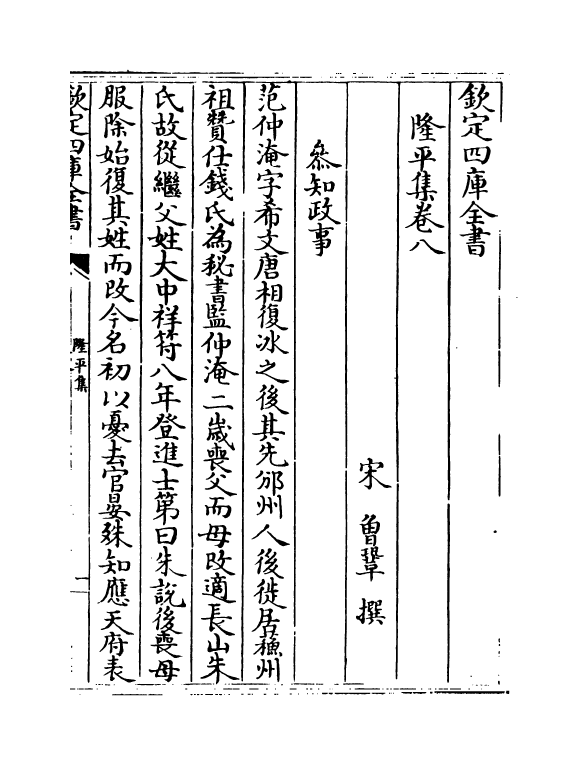 欽定四庫全書
隆平集卷八
宋 曾鞏 撰
叅知政事
范仲淹字希文唐相復冰之後其先邠州人後徙居蘓州
祖贊仕錢氏為秘書監仲淹二歲喪父而母改適長山朱
氏故從繼父姓大中祥符八年登進士第曰朱說後喪母
服除始復其姓而改今名初以憂去官晏殊知應天府表
欽定四庫全書
隆平集
一